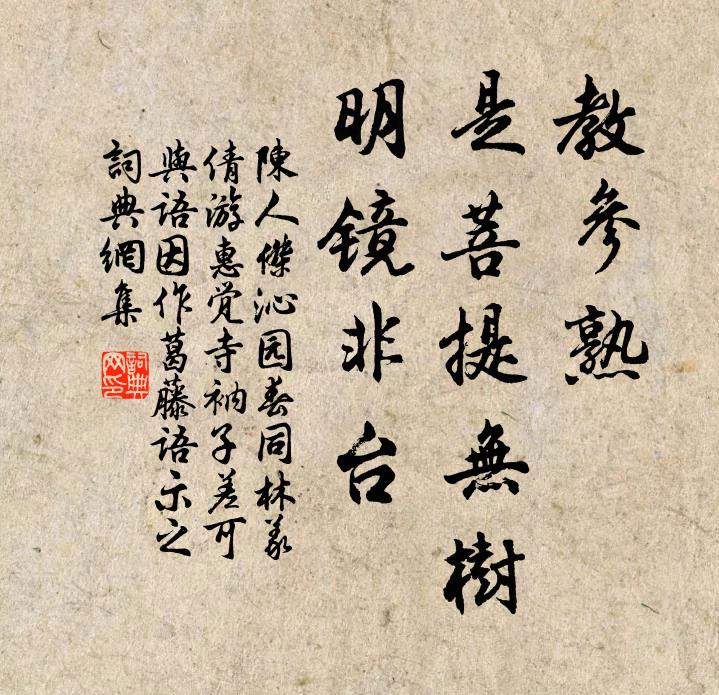 教參熟
是菩提無樹
明镜非台
陳人傑沁园春同林義
倩游惠觉寺衲子差可
與語因作葛藤語示之
詞典網集
詞典
网印